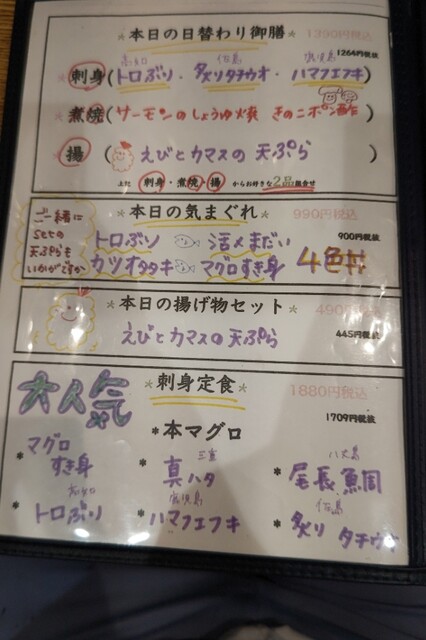 *本日の日替わり御膳* 1390円税込
1264円税抜
高知 佐島 鹿児島
*刺身(トロぶり・炙りタチウオ・ハマフエフキ)
*煮焼(サーモンのしょうゆ焼 きのこポン酢)
*揚(えびとカマスの天ぷら)
上記 刺身・煮焼・揚 からお好きな2品組合せ
*本日の気まぐれ* 990円税込
900円税抜
ご一緒に
Setの
天ぷらも
いかがですか
トロぶり 活〆まだい
カツオタタキ マグロすき身 4色丼
*本日の揚げ物セット* 490円税込
445円税抜
えびとカマスの天ぷら
大人気
*刺身定食* 1880円税込
1709円税抜
*本マグロ
*マグロ
すき身
三重
*真ハタ
八丈島
*尾長鯛
高知
*トロぶり
鹿児島
*ハマフエフキ
佐島
*炙り タチウオ